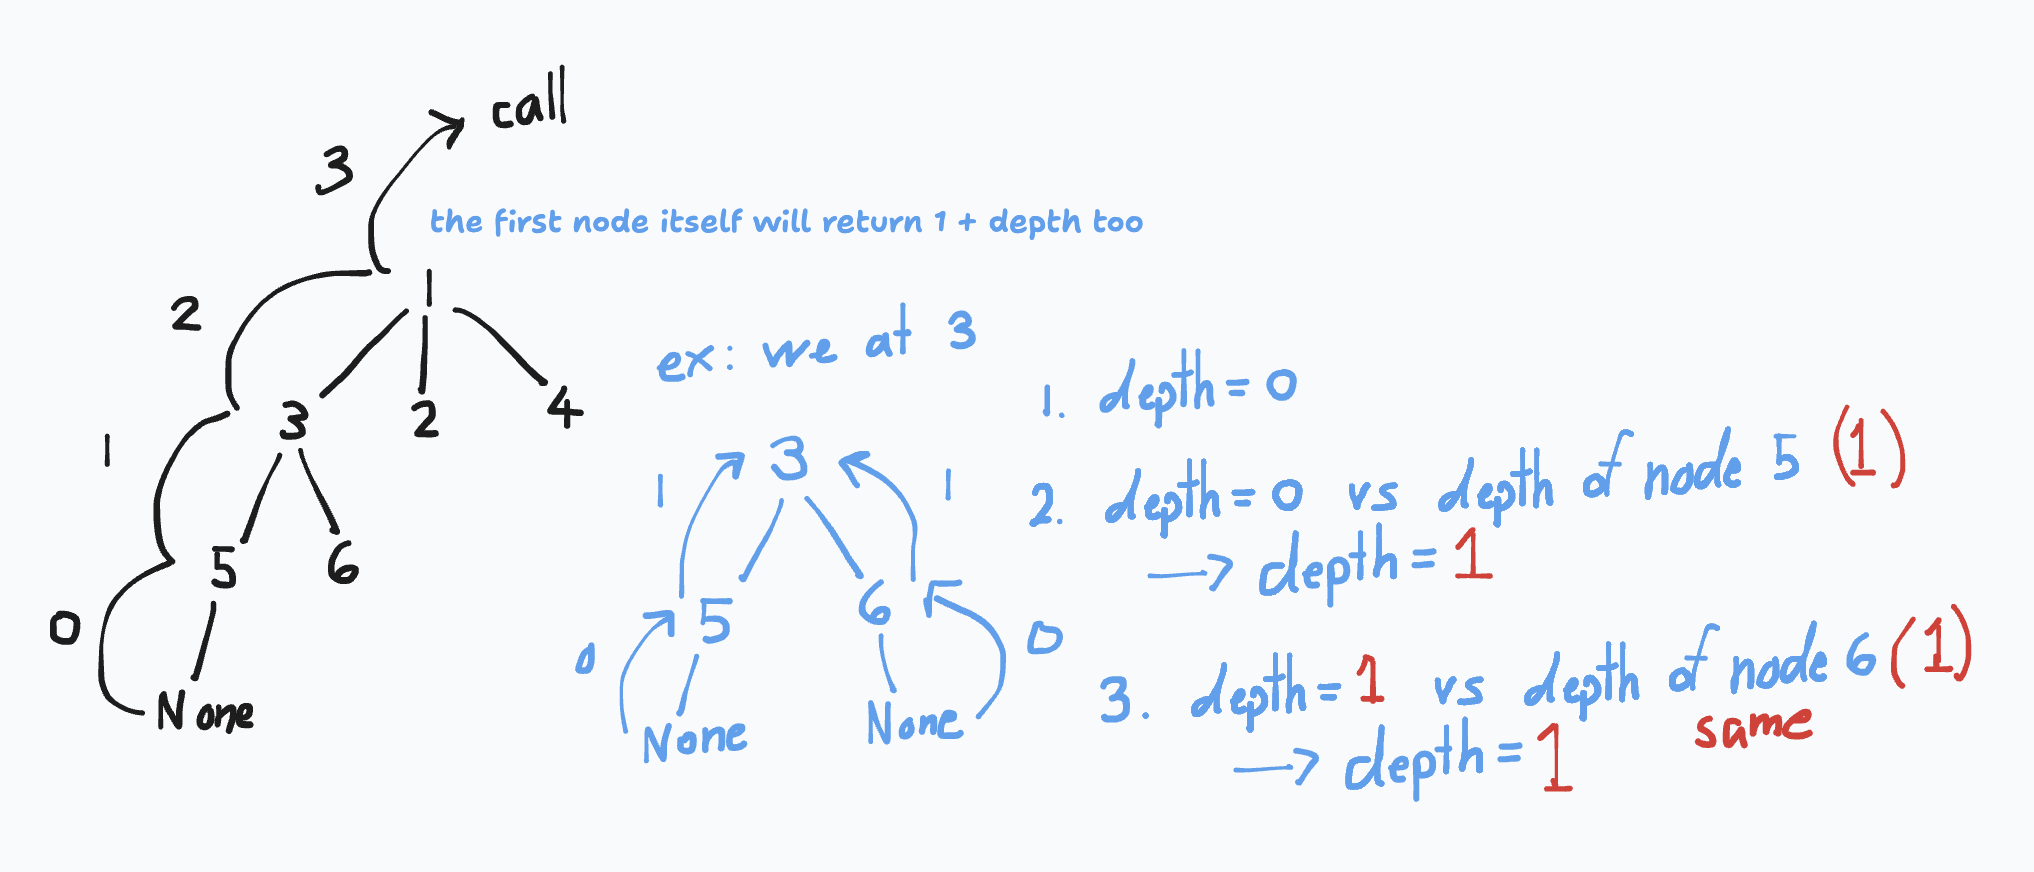 call
3
the first node itself will return 1 + depth too
1
2
3 2 4
1
5 6
0
None
ex: we at 3
3
1 1
5 6
0 0
None None
1. depth = 0
2. depth = 0 vs depth of node 5 (1)
→ depth = 1
3. depth = 1 vs depth of node 6 (1)
same
→ depth = 1